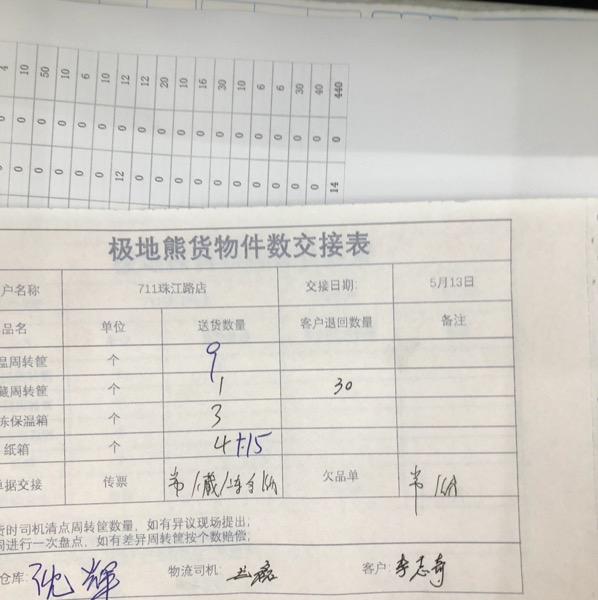 4 10 50 10 6 10 12 12 20 10 16 30 10 6 6 30 40 440
0 0 0 0 0 0 0 0 0 0 0 0 0 0 0 0 0 0
0 0 0 0 0 0 12 0 0 0 0 0 0 0 0 0 0 14
极地熊货物件数交接表
户名称 711珠江路店 交接日期: 5月13日
品名 单位 送货数量 客户退回数量 备注
温周转筐 个 9
藏周转筐 个 1 30
冻保温箱 个 3
纸箱 个 4+15
单据交接 传票 欠品单
货时司机清点周转筐数量，如有异议现场提出;
周进行一次盘点，如有差异周转筐按个数赔偿;
仓库: 沈辉 物流司机: 客户: 李志奇